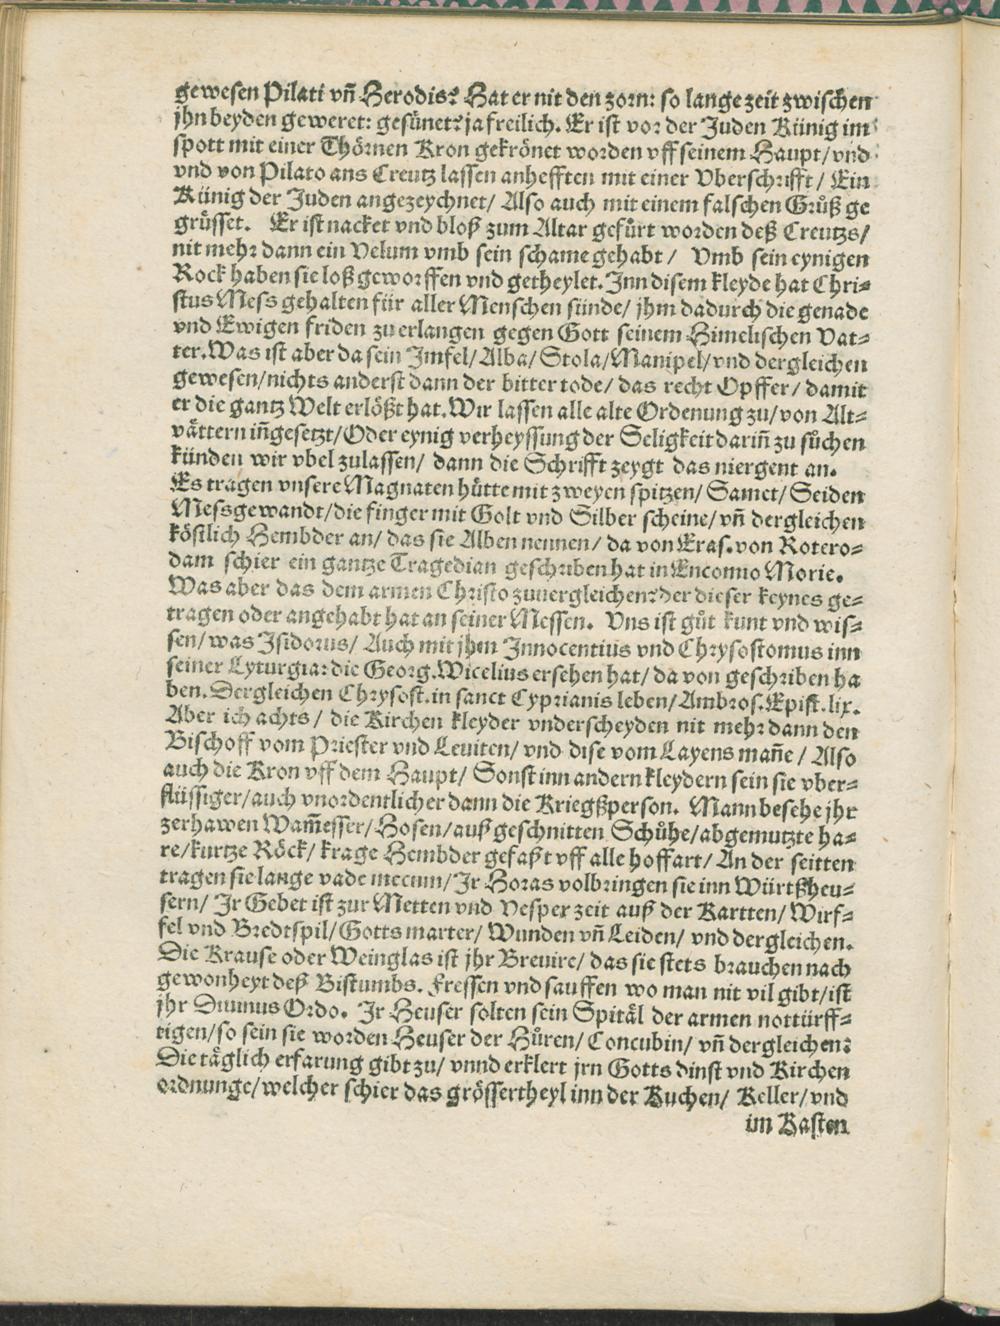 gewesen Pilati vñ Herodis? Hat er nit den zorn: so lange zeit zwischen
jhn beyden geweret: gesünet? ja freilich. Er ist vor der Juden Künig im
spott mit einer Thörnen Kron gekrönet worden vff seinem Haupt/ vnd
vnd von Pilato ans Creutz lassen anhefften mit einer Vberschrifft/ Ein
Künig der Juden angezeychnet/ Also auch mit einem falschen Gruͤß ge
grüsset. Er ist nacket vnd bloß zum Altar gefuͤrt worden deß Creutzs/
nit mehr dann ein Velum vmb sein schame gehabt/ Vmb sein eynigen
Rock haben sie loß geworffen vnd getheylet. Inn disem kleyde hat Chri⸗
stus Mess gehalten für aller Menschen sünde/ jhm dadurch die genade
vnd Ewigen friden zu erlangen gegen Gott seinem Himelischen Vat⸗
ter. Was ist aber da sein Imfel/ Alba/ Stola/ Manipel/ vnd dergleichen
gewesen/ nichts anderst dann der bitter tode/ das recht Opffer/ damit
er die gantz Welt erlößt hat. Wir lassen alle alte Ordenung zu/ von Alt⸗
vättern iñgesetzt/ Oder eynig verheyssung der Seligkeit dariñ zu suͤchen
künden wir vbel zulassen/ dann die Schrifft zeygt das niergent an.
Es tragen vnsere Magnaten hütte mit zweyen spitzen/ Samet/ Seiden
Messgewandt/ die finger mit Golt vnd Silber scheine/ vñ dergleichen
köstlich Hembder an/ das sie Alben nennen/ da von Eras. von Rotero⸗
dam schier ein gantze Tragedian geschriben hat in Encomio Morie.
Was aber das dem armen Christo zuuergleichen? der dieser keynes ge⸗
tragen oder angehabt hat an seiner Messen. Vns ist guͤt kunt vnd wis⸗
sen/ was Isidorus/ Auch mit jhm Innocentius vnd Chrysostomus inn
seiner Lyturgia: die Georg. Wicelius ersehen hat/ da von geschriben ha
ben. Dergleichen Chrysost. in sanct Cyprianis leben/ Ambros. Epist. lix.
Aber ich achts/ die Kirchen kleyder vnderscheyden nit mehr dann den
Bischoff vom Priester vnd Leuiten/ vnd dise vom Layens mañe/ Also
auch die Kron vff dem Haupt/ Sonst inn andern kleydern sein sie vber⸗
flüssiger/ auch vnordentlicher dann die Kriegßperson. Mann besehe jhr
zerhawen Wam̃esser/ Hosen/ auß geschnitten Schuͤhe/ abgemutzte ha⸗
re/ kurtze Röck/ krage Hembder gefaßt vff alle hoffart/ An der seitten
tragen sie lange vade mecum/ Jr Horas volbringen sie inn Würtßheu⸗
sern/ Jr Gebet ist zur Metten vnd Vesper zeit auß der Kartten/ Wirf⸗
fel vnd Bredtspil/ Gotts marter/ Wunden vñ Leiden/ vnd dergleichen.
Die Krause oder Weinglas ist jhr Breuire/ das sie stets brauchen nach
gewonheyt deß Bistumbs. Fressen vnd sauffen wo man nit vil gibt/ ist
jhr Diuinus Ordo. Jr Heuser solten sein Spitäl der armen nottürff⸗
tigen/ so sein sie worden Heuser der Huͤren/ Concubin/ vñ dergleichen:
Die täglich erfarung gibt zu/ vnnd erklert jrn Gotts dinst vnd Kirchen
ordnunge/ welcher schier das grössertheyl inn der Kuchen/ Keller/ vnd
im Kasten